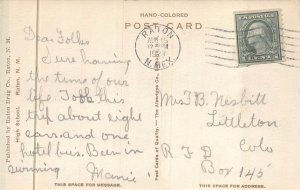 HAND-COLORED
POST CARD
Dear Folks
Sure having
the time of our
life. Took this
trip about eight
cars and one
hotel bus. Been in
swimming
Mamie
RATON
N. MEX.
Mrs F B. Nesbitt
Littleton
Colo
R F D
Box 145
THIS SPACE FOR MESSAGE.
THIS SPACE FOR ADDRESS.
Published by Raton Drug Co., Raton, N. M.
High School. Raton, N. M.
Post Cards of Quality.